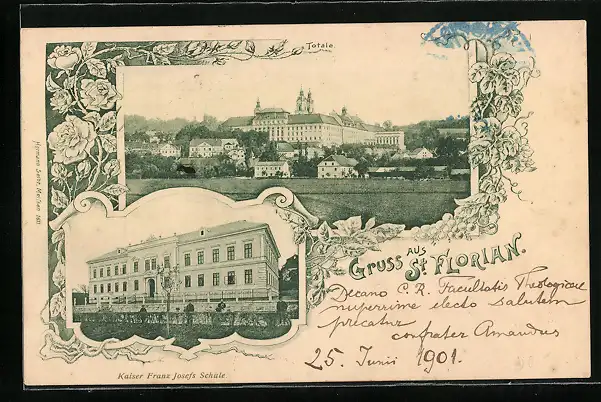 Totale.
Hermann Seibt, Meissen
Gruss aus
St Florian.
Decano C. R. Facultatis Theologicae
nuperrime electo salutem
precatur
confrater Amandus
25. Junii 1901.
Kaiser Franz Josefs Schule